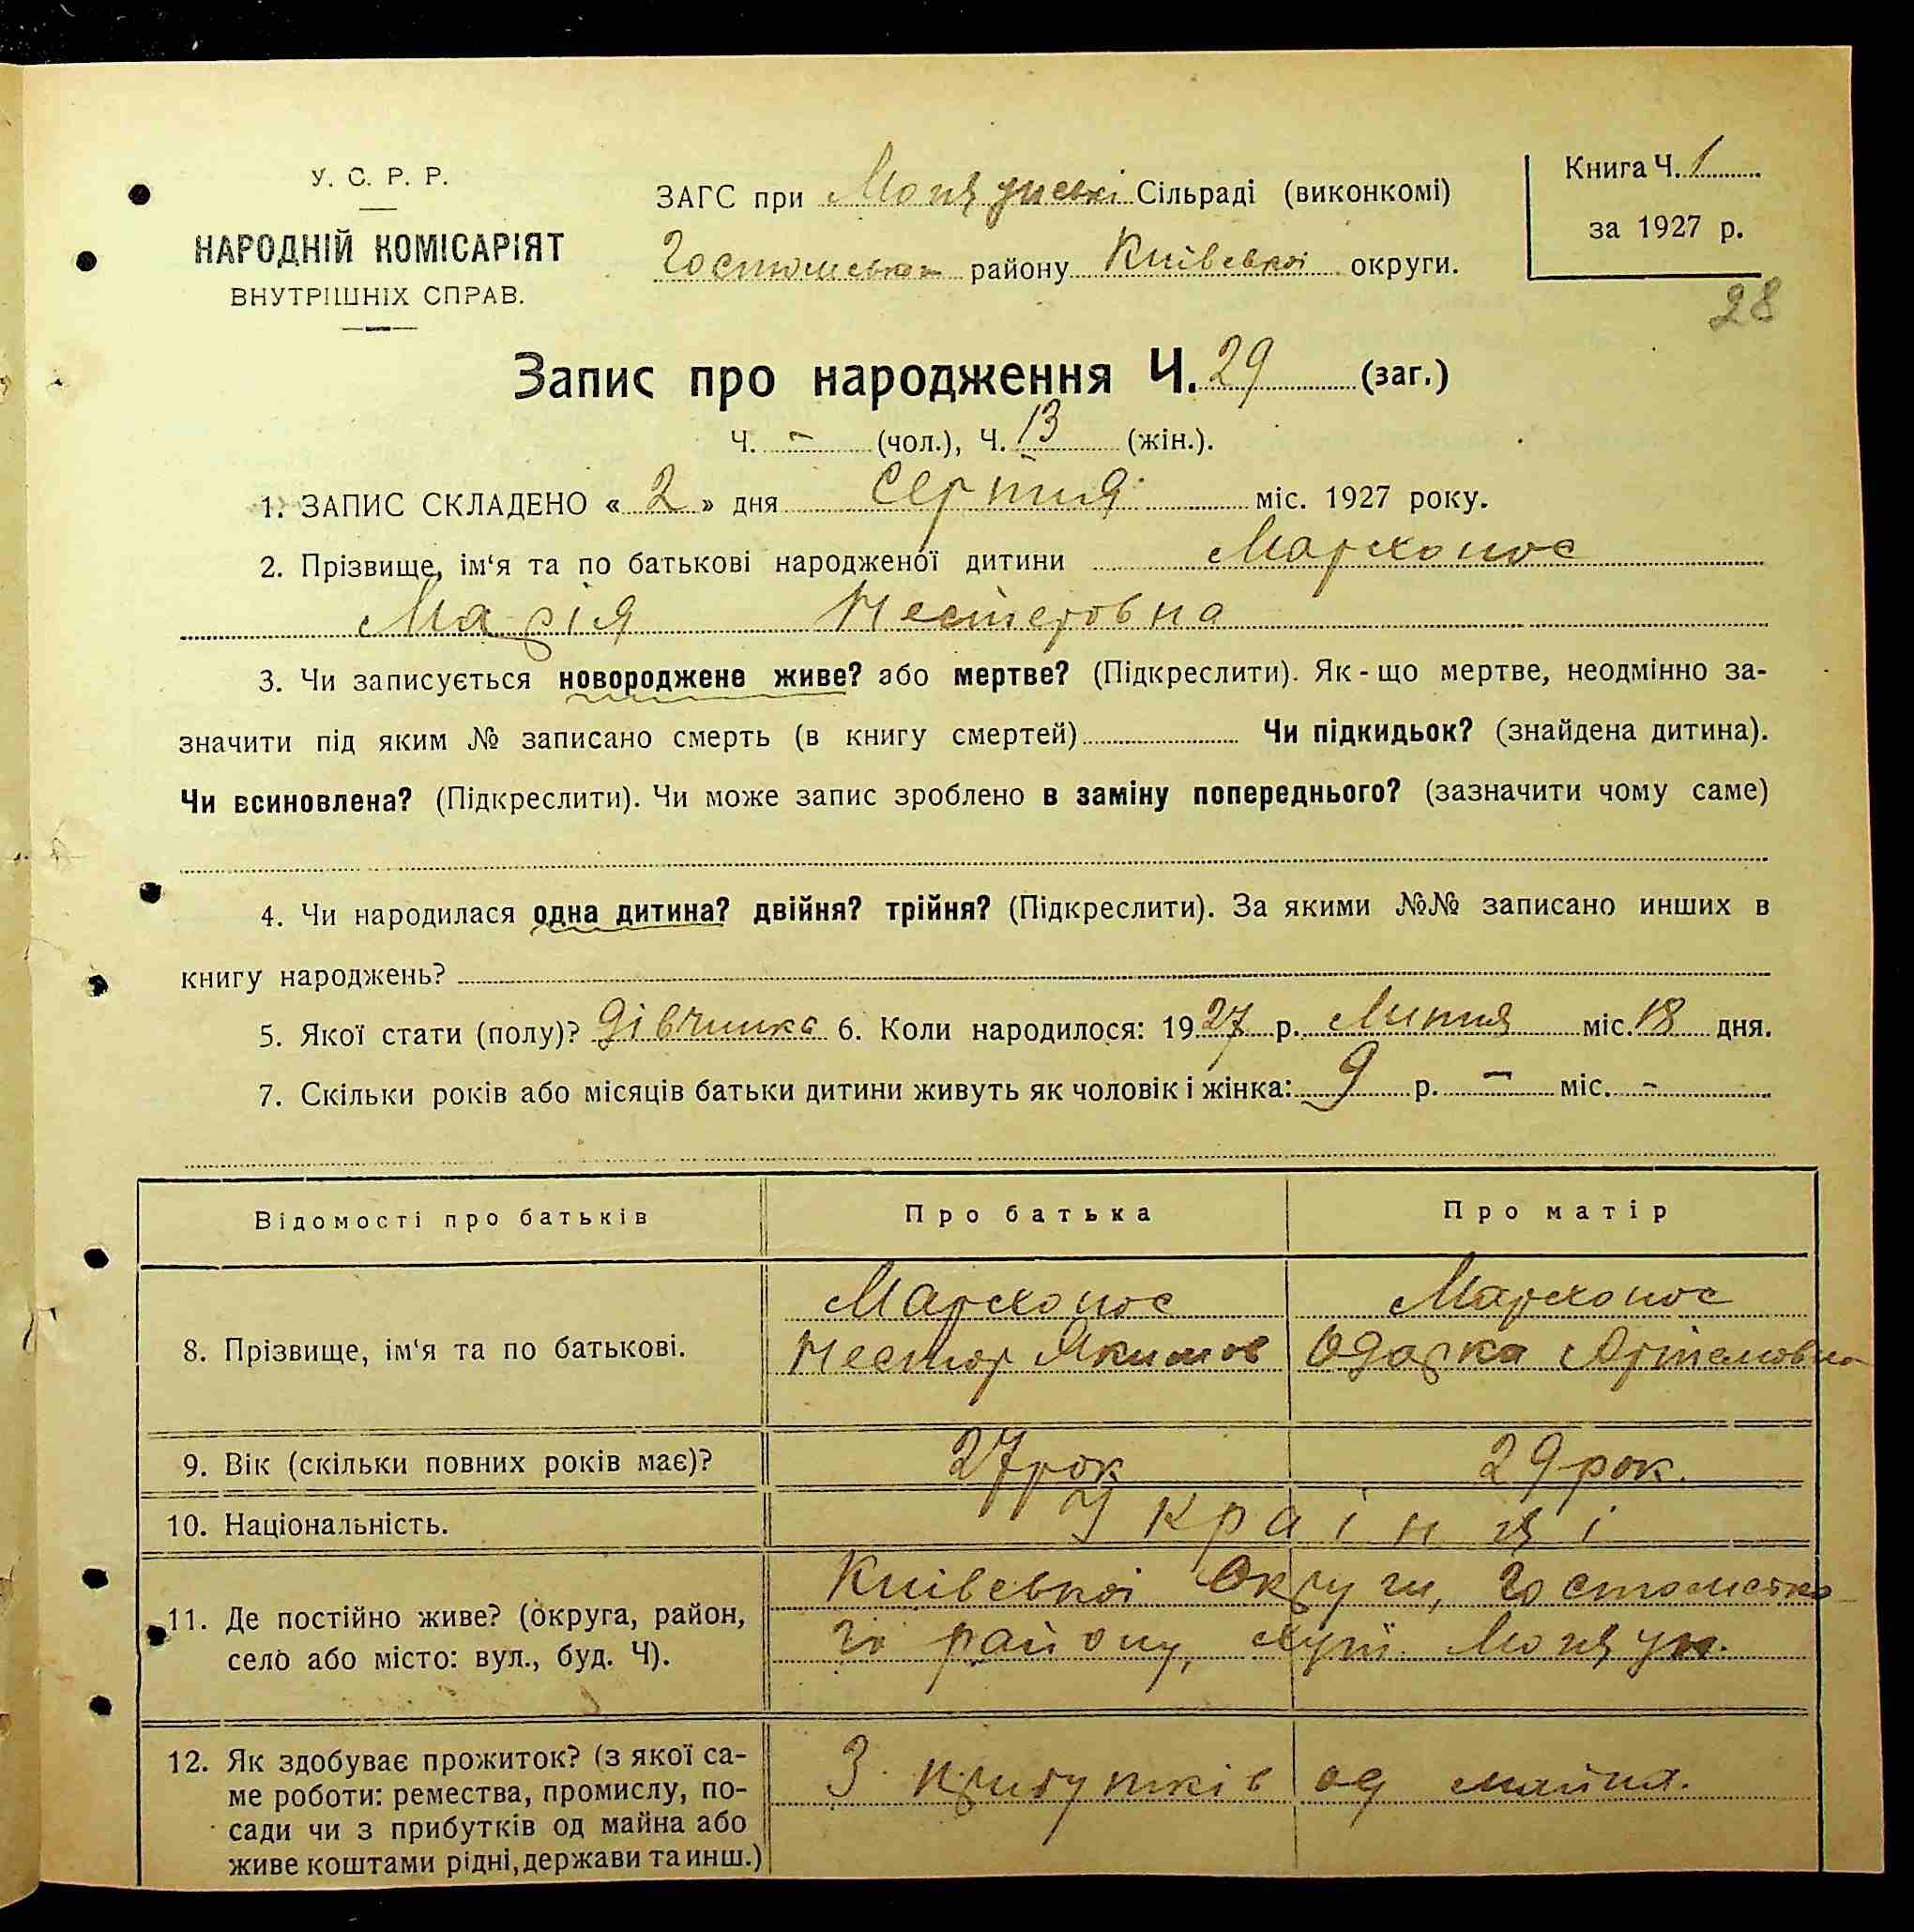 У. С. Р. Р.
НАРОДНІЙ КОМІСАРІЯТ
ВНУТРІШНІХ СПРАВ.
ЗАГС при Мощунські Сільраді (виконкомі)
Гостомськог району Київської округи.
Книга Ч. 1
за 1927 р.
28
Запис про народження Ч. 29 (заг.)
Ч. – (чол.), Ч. 13 (жін.).
1. ЗАПИС СКЛАДЕНО « 2 » дня Серпня міс. 1927 року.
2. Прізвище, ім‘я та по батькові народженої дитини Мархонос
Марія Нестеровна
3. Чи записується новороджене живе? або мертве? (Підкреслити). Як-що мертве, неодмінно за-
значити під яким № записано смерть (в книгу смертей) Чи підкидьок? (знайдена дитина).
Чи всиновлена? (Підкреслити). Чи може запис зроблено в заміну попереднього? (зазначити чому саме)
4. Чи народилася одна дитина? двійня? трійня? (Підкреслити). За якими №№ записано инших в
книгу народжень?
5. Якої стати (полу)? дівчинка 6. Коли народилося: 1927 р. Липня міс. 18 дня.
7. Скільки років або місяців батьки дитини живуть як чоловік і жінка: 9 р. – міс. –
Відомості про батьків Про батька Про матір
8. Прізвище, ім‘я та по батькові.
Мархонос
Нестор Якимов
Мархонос
Одарка Артемовна
9. Вік (скільки повних років має)? 27 рок 29 рок.
10. Національність. Украінці
11. Де постійно живе? (округа, район,
село або місто: вул., буд. Ч).
Київської Округи, Гостомсько
го району, хут. Мощун.
12. Як здобуває прожиток? (з якої са-
ме роботи: ремества, промислу, по-
сади чи з прибутків од майна або
живе коштами рідні, держави та инш.)
З прибутків од майна.